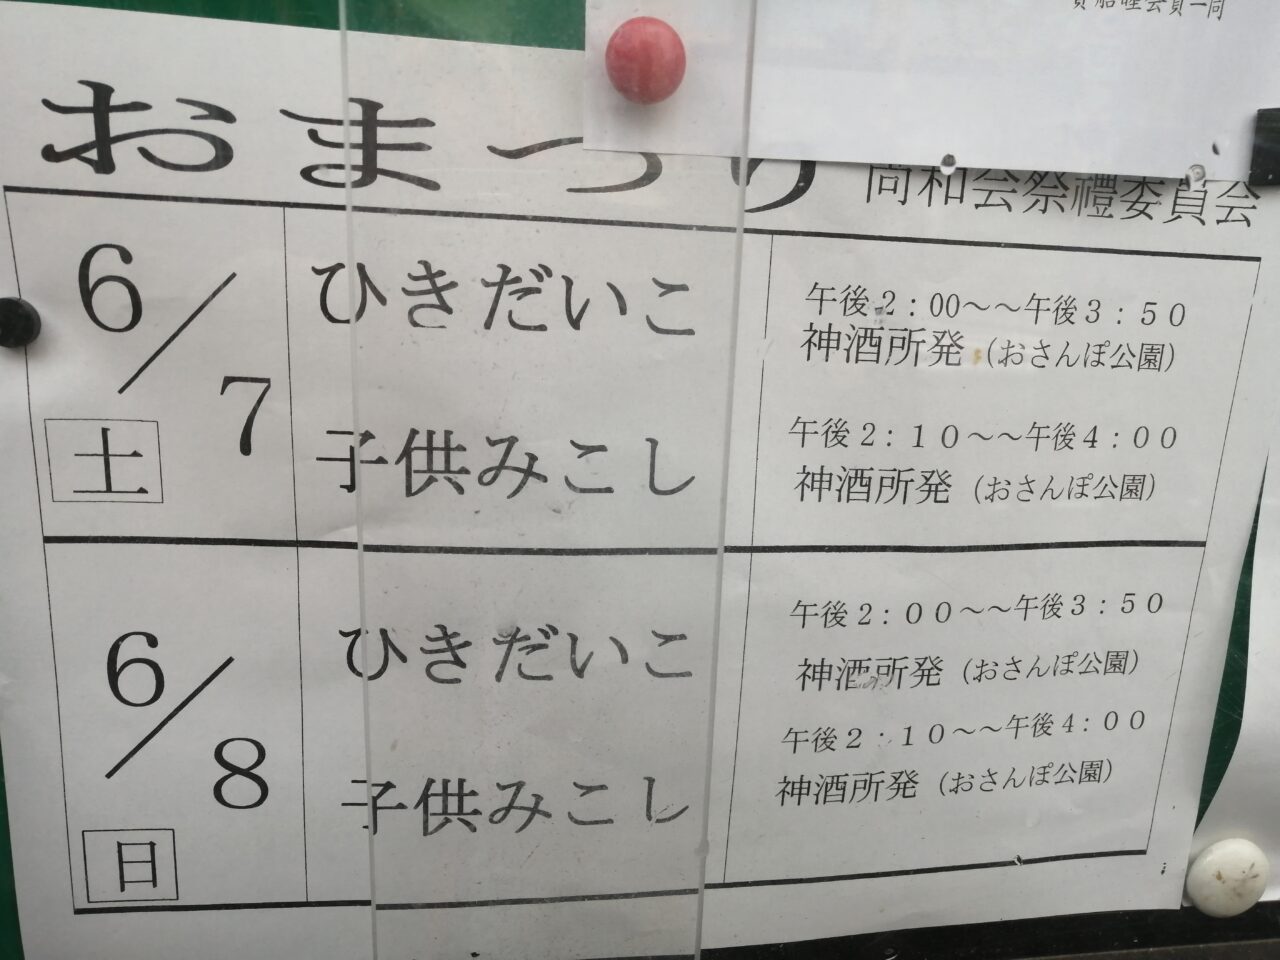 おまつり 尚和会祭禮委員会
6/7 土
ひきだいこ
午後2:00～～午後3:50
神酒所発(おさんぽ公園)
子供みこし
午後2:10～～午後4:00
神酒所発(おさんぽ公園)
6/8 日
ひきだいこ
午後2:00～～午後3:50
神酒所発(おさんぽ公園)
子供みこし
午後2:10～～午後4:00
神酒所発(おさんぽ公園)